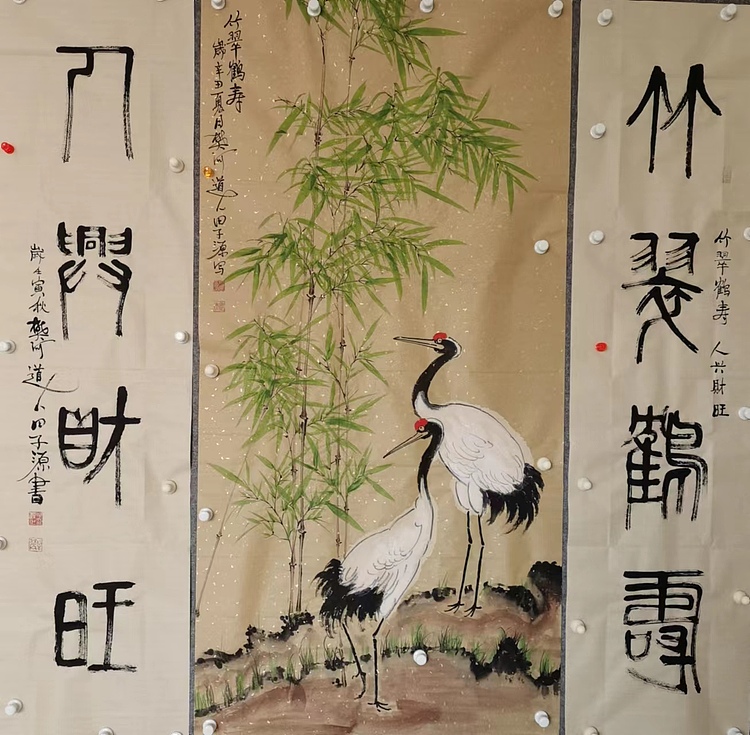 竹翠鶴壽
竹翠鶴寿 人兴財旺
竹翠鶴寿
歲辛丑夏月樊河道人田子源写
人興財旺
歲壬寅秋樊河道人田子源書